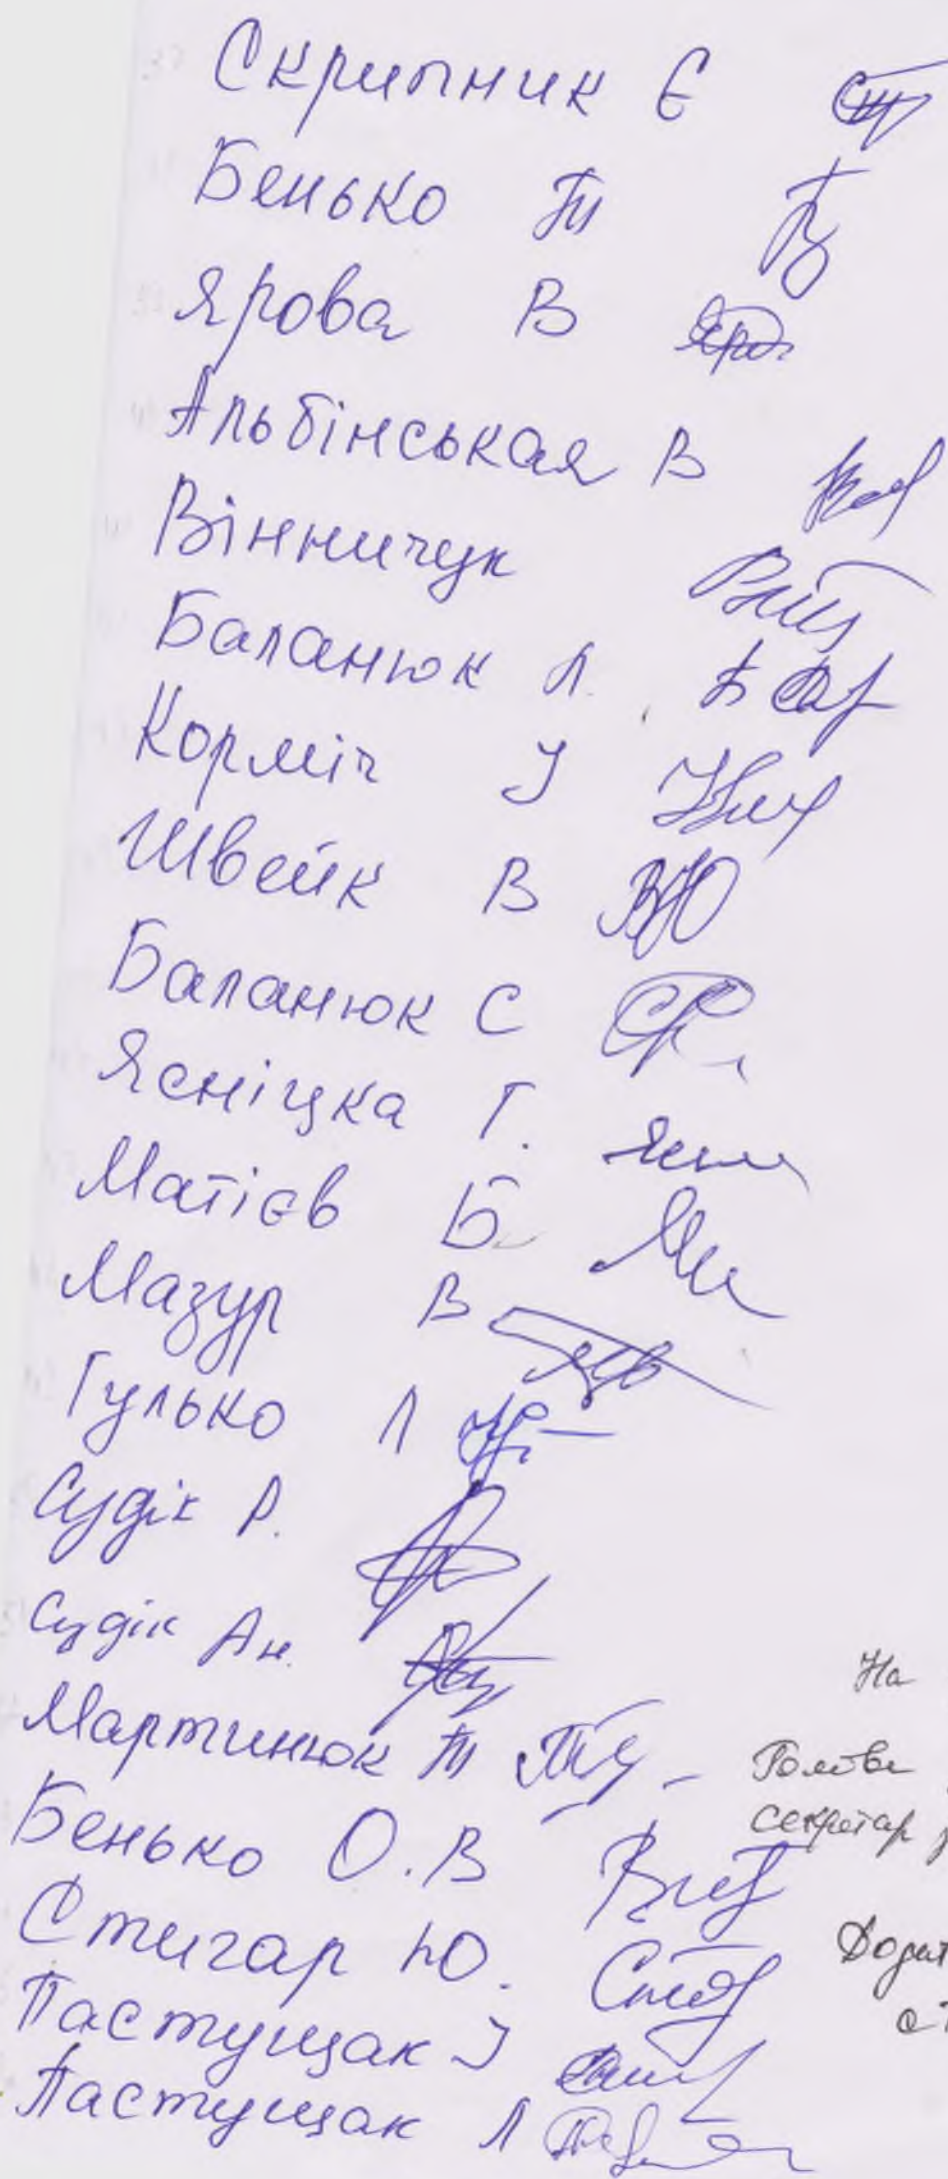 Скрипник Є
Бенько Т
Ярова В
Альбінськая В
Вінничук
Баланюк Л.
Корміч І
Швейк В
Баланюк С
Ясніцка Г.
Матієв Б
Мазур В
Гулько Л
Судік Р.
Судік Ан.
Мартинюк Т
Бенько О.В
Стигар Ю.
Пастущак І
Пастущак Л
На
секретар